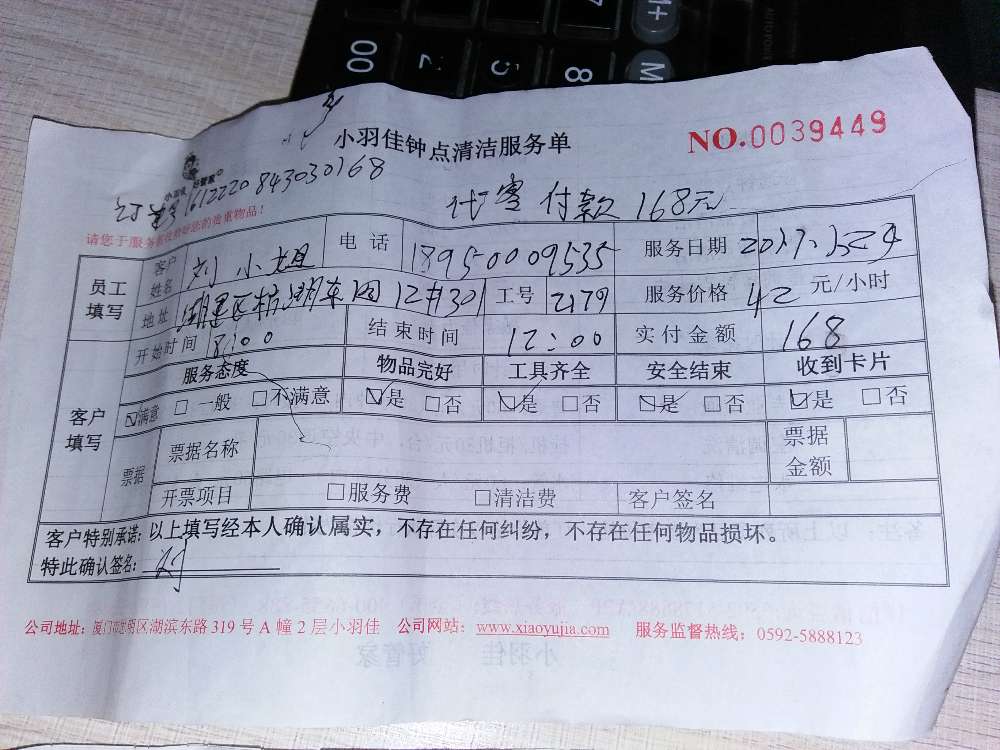 M+
00 2 5 8 M
小羽佳钟点清洁服务单 NO.0039449
小羽佳 好管家
1612220843030168
代客付款168元
请您于服务前收好您的贵重物品!
员工填写 客户姓名 刘小姐 电话 18950009535 服务日期
地址 湖里区 12#301 工号 2179 服务价格 42 元/小时
开始时间 8:00 结束时间 12:00 实付金额 168
客户填写 服务态度 物品完好 工具齐全 安全结束 收到卡片
☑满意 □一般 □不满意 ☑是 □否 ☑是 □否 ☑是 □否 ☑是 □否
票据 票据名称 票据金额
开票项目 □服务费 □清洁费 客户签名
客户特别承诺:以上填写经本人确认属实,不存在任何纠纷,不存在任何物品损坏。
特此确认签名: 刘
公司地址:厦门市思明区湖滨东路319号A幢2层小羽佳 公司网站:www.xiaoyujia.com 服务监督热线:0592-5888123